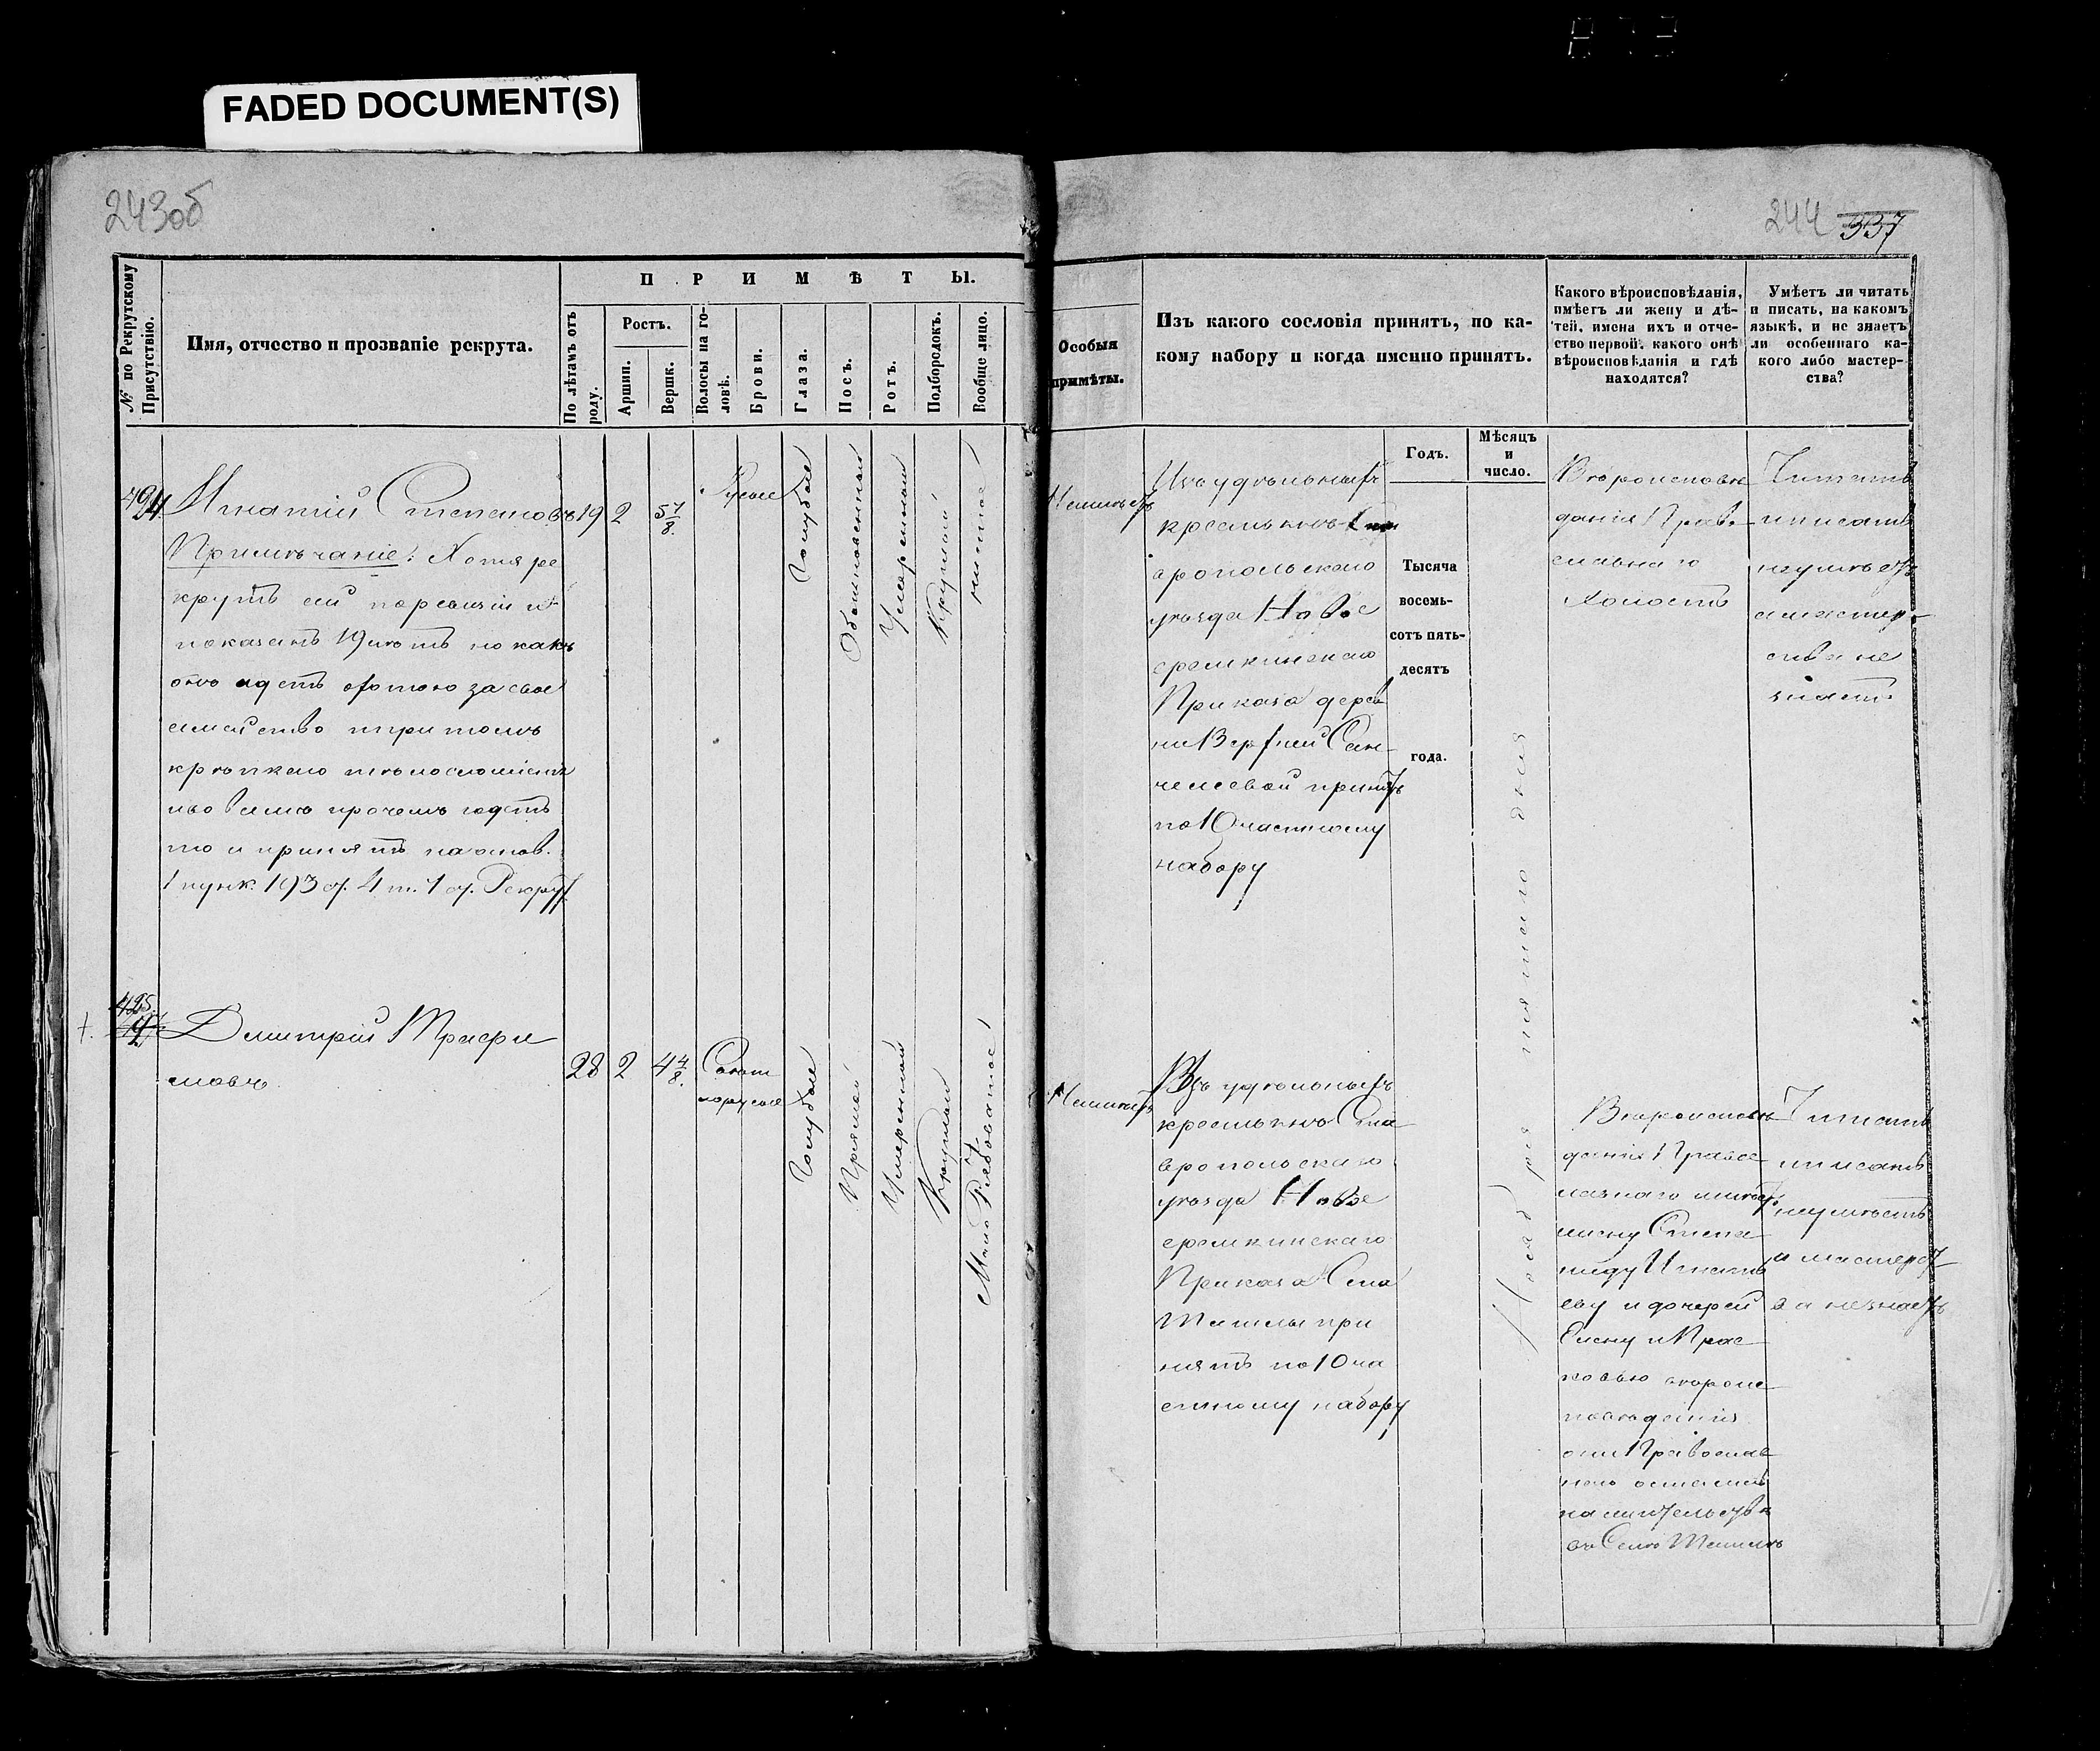 FADED DOCUMENT(S)
243об
244 337
№ по Рекрутскому Присутствію.
Имя, отчество и прозваніе рекрута.
ПРИМѢТЫ.
По лѣтамъ отъ роду.
Ростъ.
Аршин.
Вершк.
Волосы на головѣ.
Брови.
Глаза.
Носъ.
Ротъ.
Подбородокъ.
Вообще лицо.
Особыя
примѣты.
Изъ какого сословія принятъ, по ка-
кому набору и когда именно принятъ.
Какого вѣроисповѣданія,
имѣетъ ли жену и дѣ-
тей, имена ихъ и отче-
ство первой, какого онѣ
вѣроисповѣданія и гдѣ
находятся?
Умѣетъ ли читать
и писать, на какомъ
языкѣ, и не знаетъ
ли особеннаго ка-
кого либо мастер-
ства?
Годъ.
Мѣсяцъ
и
число.
Тысяча
восемь-
сотъ пять-
десятъ
года.
494
Игнатій Степановъ
Примѣчаніе: Хотя ре
крутъ сей по ревизіи и
показанъ 19 лѣтъ но какъ
онъ идетъ охотою за свое
семейство и при томъ
крѣпкаго тѣлосложенія
и во всемъ прочемъ годенъ
то и принятъ на основ.
1 пунк. 193 ст. 4 т. 1 ст. Рекрут.
19
2
5 7/8.
Русые
Голубые
Обыкновенный
Умѣренный
Круглый
чистое
Неимѣетъ
Изъ удѣльныхъ
крестьянъ Став
ропольскаго
уѣзда Ново
еремкинскаго
Приказа дерев
ни Верхней Сан
челеевой принятъ
по 10 частному
набору
Ноября пятаго дня
Вѣроисповѣ
данія Право
славнаго
Холостъ
Читать
и писать
неумѣетъ
а мастер-
ства не
знаетъ
495
Дмитрій Прасфи
ловъ
28
2
4 4/8.
Свѣт
лорусые
Голубые
Прямой
Умѣренный
Круглый
Мало Рябоватое
Неимѣетъ
Изъ удѣльныхъ
крестьянъ Ста
вропольскаго
уѣзда Ново
еремкинскаго
Приказа Села
Ташлы при
нятъ по 10 ча
стному набору
Вѣроисповѣ
данія Право
славнаго имѣетъ
жену Степа
ниду Игнать
еву и дочерей
Елену и Прас
ковью вѣроис
повѣданія
они Православ
наго остались
на жительствѣ
въ Селѣ Ташлѣ
Читать
и писать
неумѣетъ
и мастерст
ва незнаетъ